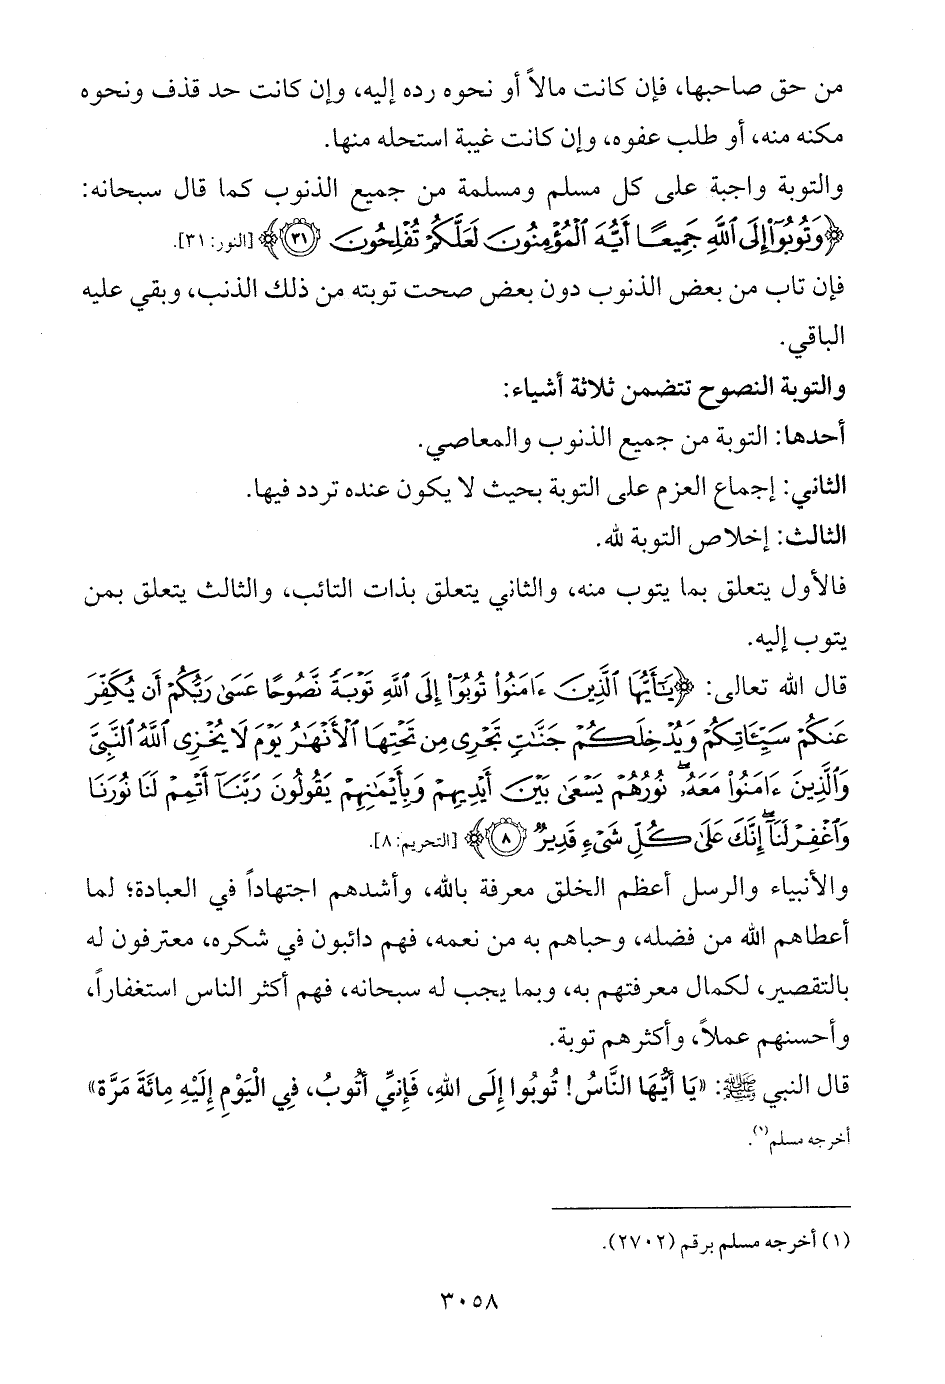 من حق صاحبها، فإن كانت مالاً أو نحوه رده إليه، وإن كانت حد قذف ونحوه
مكنه منه، أو طلب عفوه، وإن كانت غيبة استحله منها.
والتوبة واجبة على كل مسلم ومسلمة من جميع الذنوب كما قال سبحانه:
﴿وَتُوبُوٓا۟ إِلَى ٱللَّهِ جَمِيعًا أَيُّهَ ٱلْمُؤْمِنُونَ لَعَلَّكُمْ تُفْلِحُونَ ٣١﴾ [النور: ٣١].
فإن تاب من بعض الذنوب دون بعض صحت توبته من ذلك الذنب، وبقي عليه
الباقي.
والتوبة النصوح تتضمن ثلاثة أشياء:
أحدها: التوبة من جميع الذنوب والمعاصي.
الثاني: إجماع العزم على التوبة بحيث لا يكون عنده تردد فيها.
الثالث: إخلاص التوبة لله.
فالأول يتعلق بما يتوب منه، والثاني يتعلق بذات التائب، والثالث يتعلق بمن
يتوب إليه.
قال الله تعالى: ﴿يَٰٓأَيُّهَا ٱلَّذِينَ ءَامَنُوا۟ تُوبُوٓا۟ إِلَى ٱللَّهِ تَوْبَةً نَّصُوحًا عَسَىٰ رَبُّكُمْ أَن يُكَفِّرَ
عَنكُمْ سَيِّـَٔاتِكُمْ وَيُدْخِلَكُمْ جَنَّٰتٍ تَجْرِى مِن تَحْتِهَا ٱلْأَنْهَٰرُ يَوْمَ لَا يُخْزِى ٱللَّهُ ٱلنَّبِىَّ
وَٱلَّذِينَ ءَامَنُوا۟ مَعَهُۥ ۖ نُورُهُمْ يَسْعَىٰ بَيْنَ أَيْدِيهِمْ وَبِأَيْمَٰنِهِمْ يَقُولُونَ رَبَّنَآ أَتْمِمْ لَنَا نُورَنَا
وَٱغْفِرْ لَنَآ ۖ إِنَّكَ عَلَىٰ كُلِّ شَىْءٍ قَدِيرٌ ٨﴾ [التحريم: ٨].
والأنبياء والرسل أعظم الخلق معرفة بالله، وأشدهم اجتهاداً في العبادة؛ لما
أعطاهم الله من فضله، وحباهم به من نعمه، فهم دائبون في شكره، معترفون له
بالتقصير، لكمال معرفتهم به، وبما يجب له سبحانه، فهم أكثر الناس استغفاراً،
وأحسنهم عملاً، وأكثرهم توبة.
قال النبي ﷺ: «يَا أَيُّهَا النَّاسُ! تُوبُوا إِلَى اللهِ، فَإِنِّي أَتُوبُ، فِي الْيَوْمِ إِلَيْهِ مِائَةَ مَرَّة»
أخرجه مسلم(١).
(١) أخرجه مسلم برقم (٢٧٠٢).
٣٠٥٨